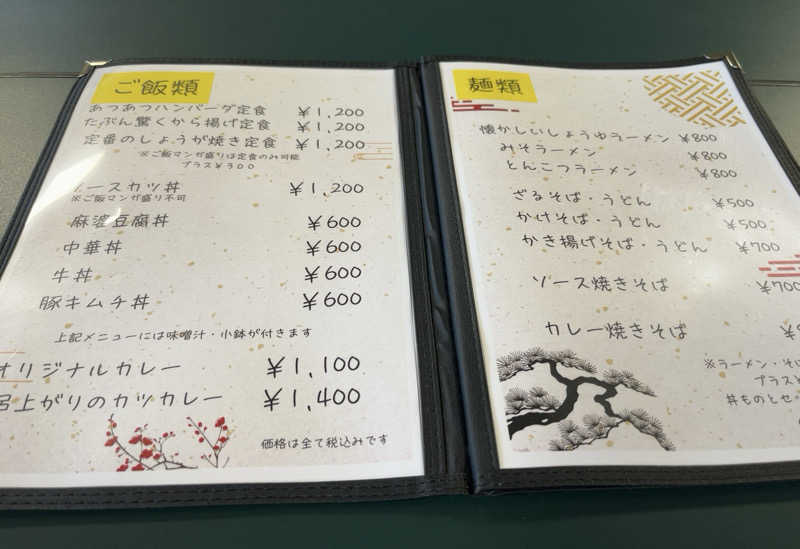 ご飯類
あつあつハンバーグ定食 ¥1,200
たぶん驚くから揚げ定食 ¥1,200
定番のしょうが焼き定食 ¥1,200
※ご飯マンガ盛りは定食のみ可能
プラス¥300
ソースカツ丼 ¥1,200
※ご飯マンガ盛り不可
麻婆豆腐丼 ¥600
中華丼 ¥600
牛丼 ¥600
豚キムチ丼 ¥600
上記メニューには味噌汁・小鉢が付きます
オリジナルカレー ¥1,100
呂上がりのカツカレー ¥1,400
価格は全て税込みです
麺類
懐かしいしょうゆラーメン ¥800
みそラーメン ¥800
とんこつラーメン ¥800
ざるそば・うどん ¥500
かけそば・うどん ¥500
かき揚げそば・うどん ¥700
ソース焼きそば ¥700
カレー焼きそば ¥
※ラーメン・そば
プラス
丼ものとセ